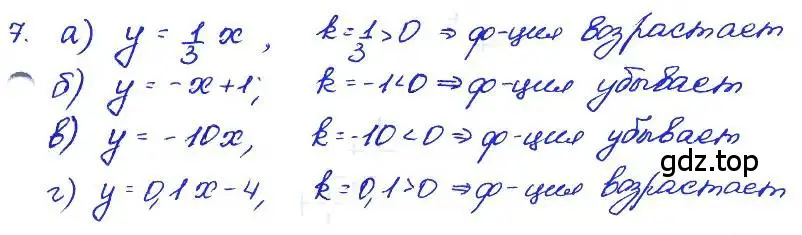 7. а) y = 1/3 x, k = 1/3 > 0 ⇒ ф-ция возрастает
б) y = -x+1; k = -1 < 0 ⇒ ф-ция убывает
в) y = -10x, k = -10 < 0 ⇒ ф-ция убывает
gdz.top
г) y = 0,1x - 4, k = 0,1 > 0 ⇒ ф-ция возрастает